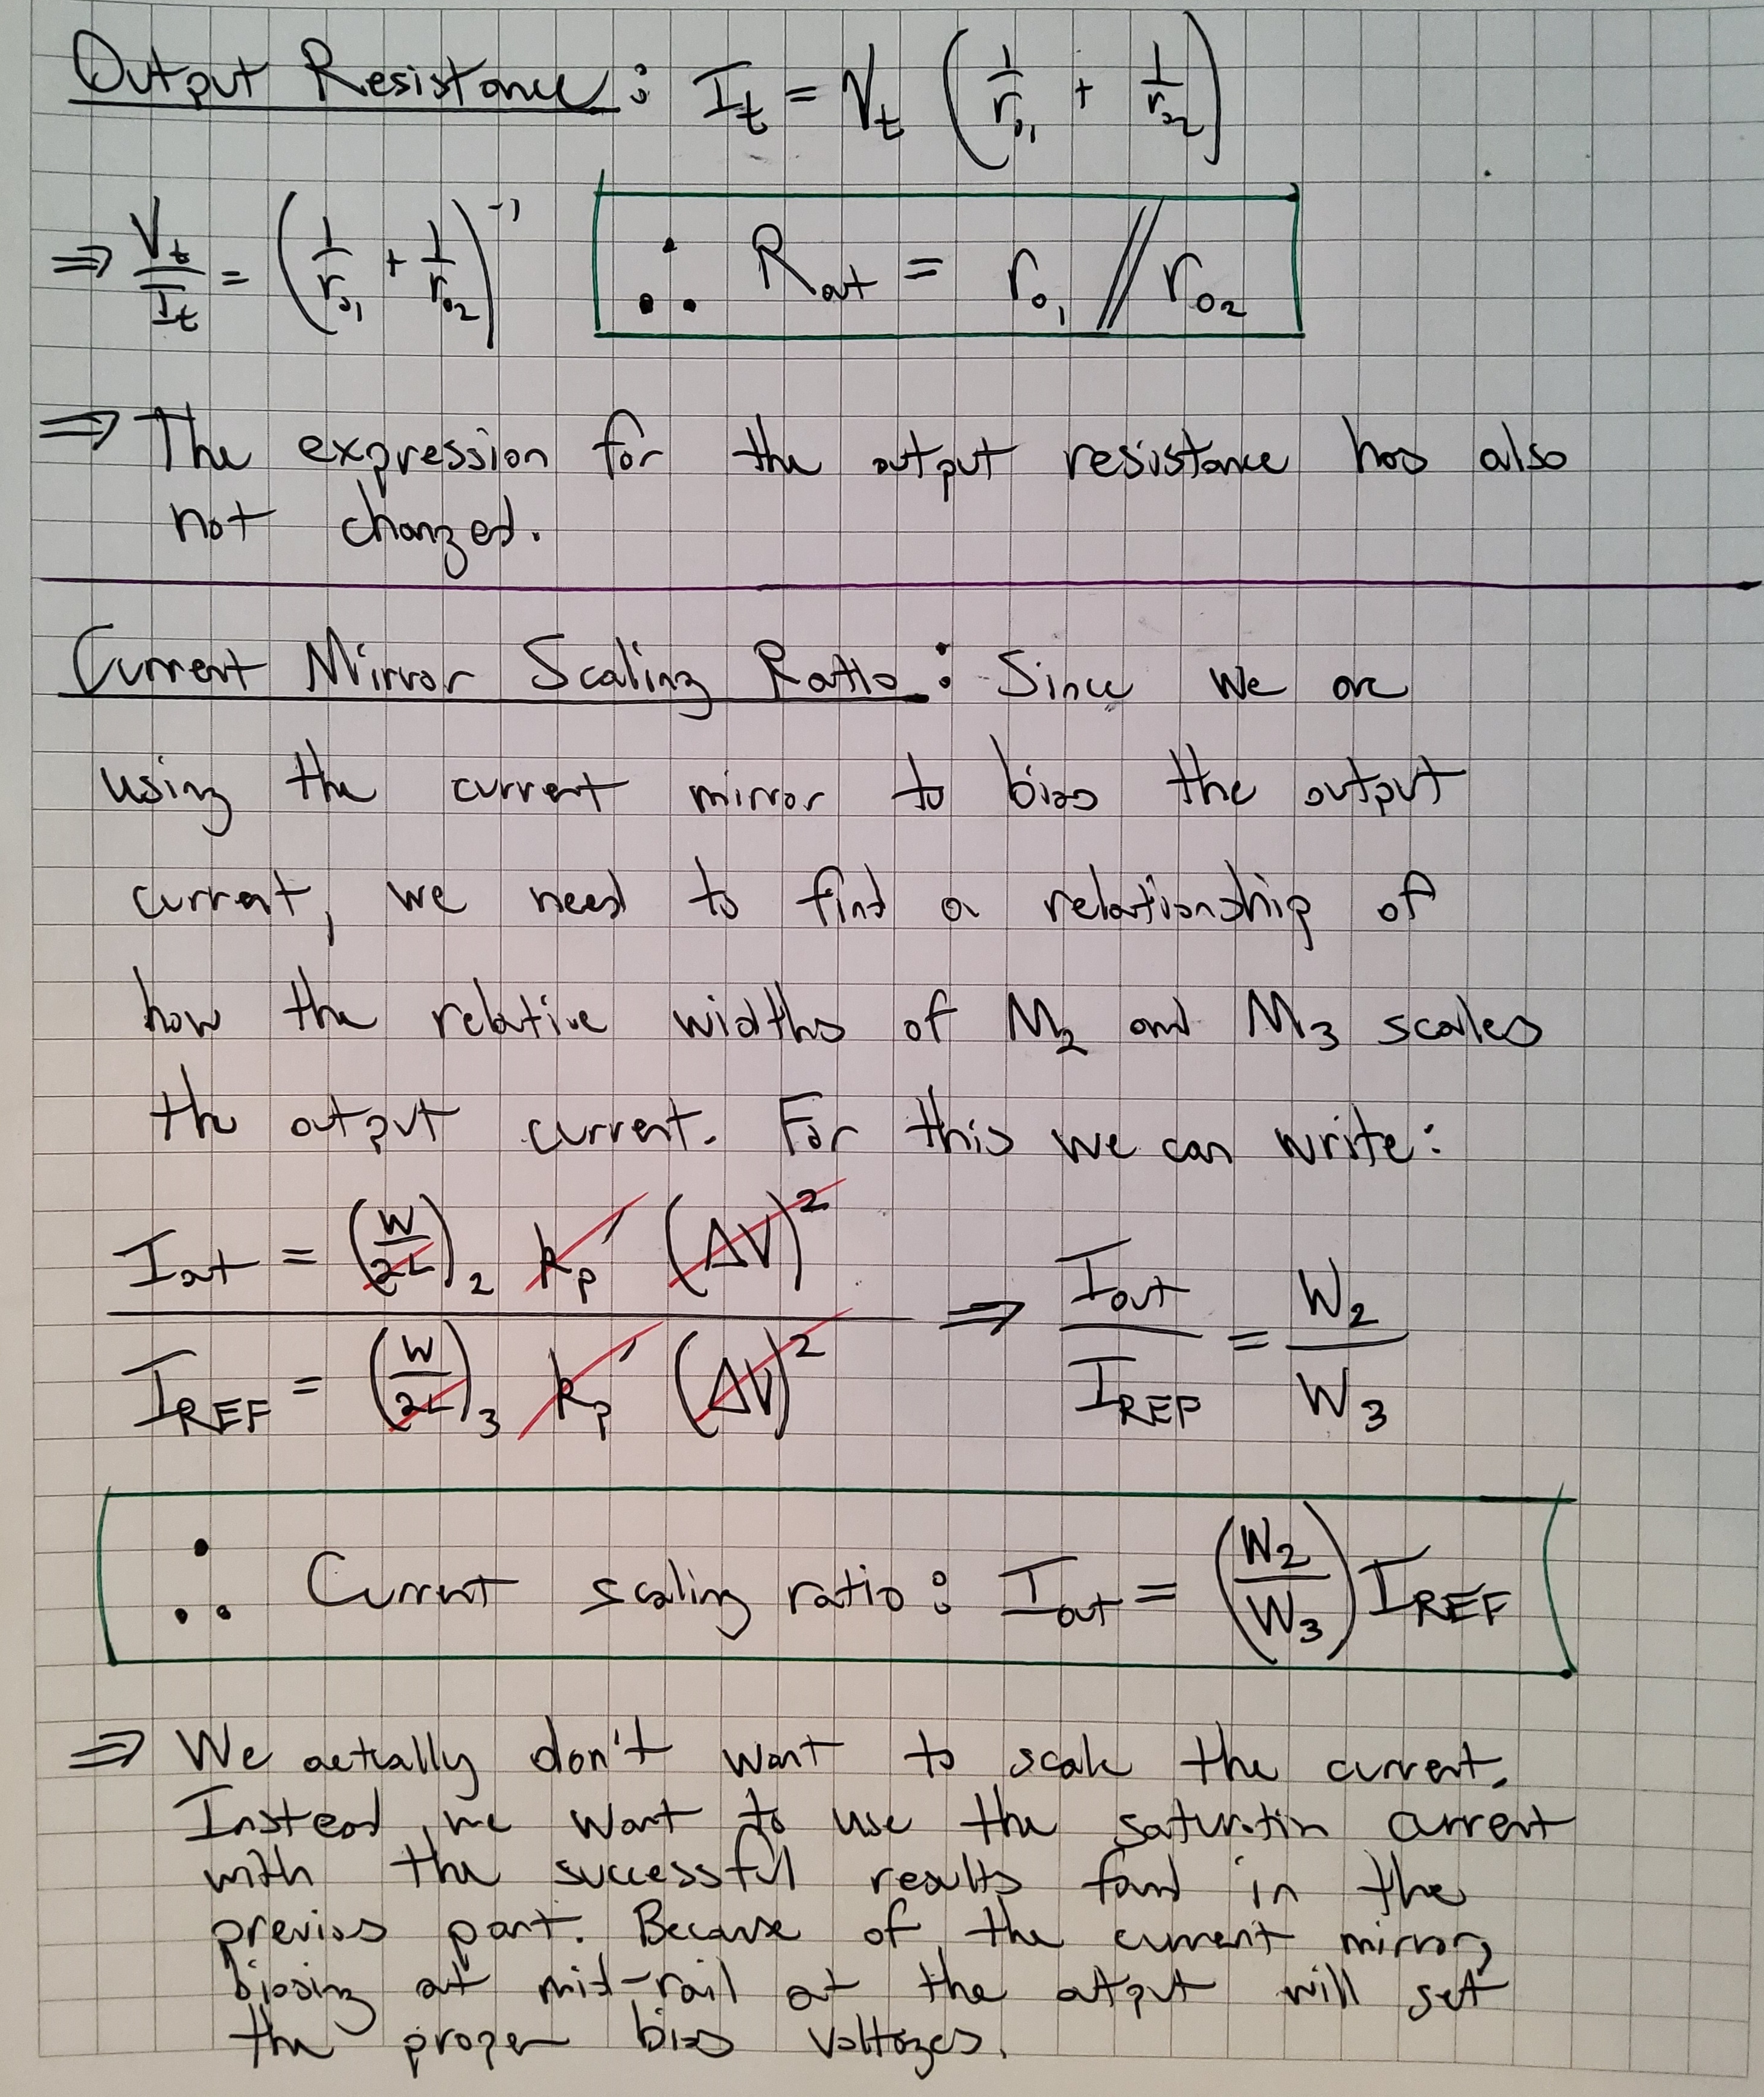 Output Resistance: I_t = V_t (1/r_o1 + 1/r_o2)
⇒ V_t/I_t = (1/r_o1 + 1/r_o2)^-1 ∴ R_out = r_o1 // r_o2
⇒ The expression for the output resistance has also
not changed.
Current Mirror Scaling Ratio: Since we are
using the current mirror to bias the output
current, we need to find a relationship of
how the relative widths of M_2 and M_3 scales
the output current. For this we can write:
I_out = (W/2L)_2 k_p' (ΔV)^2
I_REF = (W/2L)_3 k_p' (ΔV)^2 ⇒ I_out/I_REF = W_2/W_3
∴ Current scaling ratio: I_out = (W_2/W_3) I_REF
⇒ We actually don't want to scale the current.
Instead, we want to use the saturation current
with the successful results found in the
previous part. Because of the current mirror,
biasing at mid-rail at the output will set
the proper bias voltages.